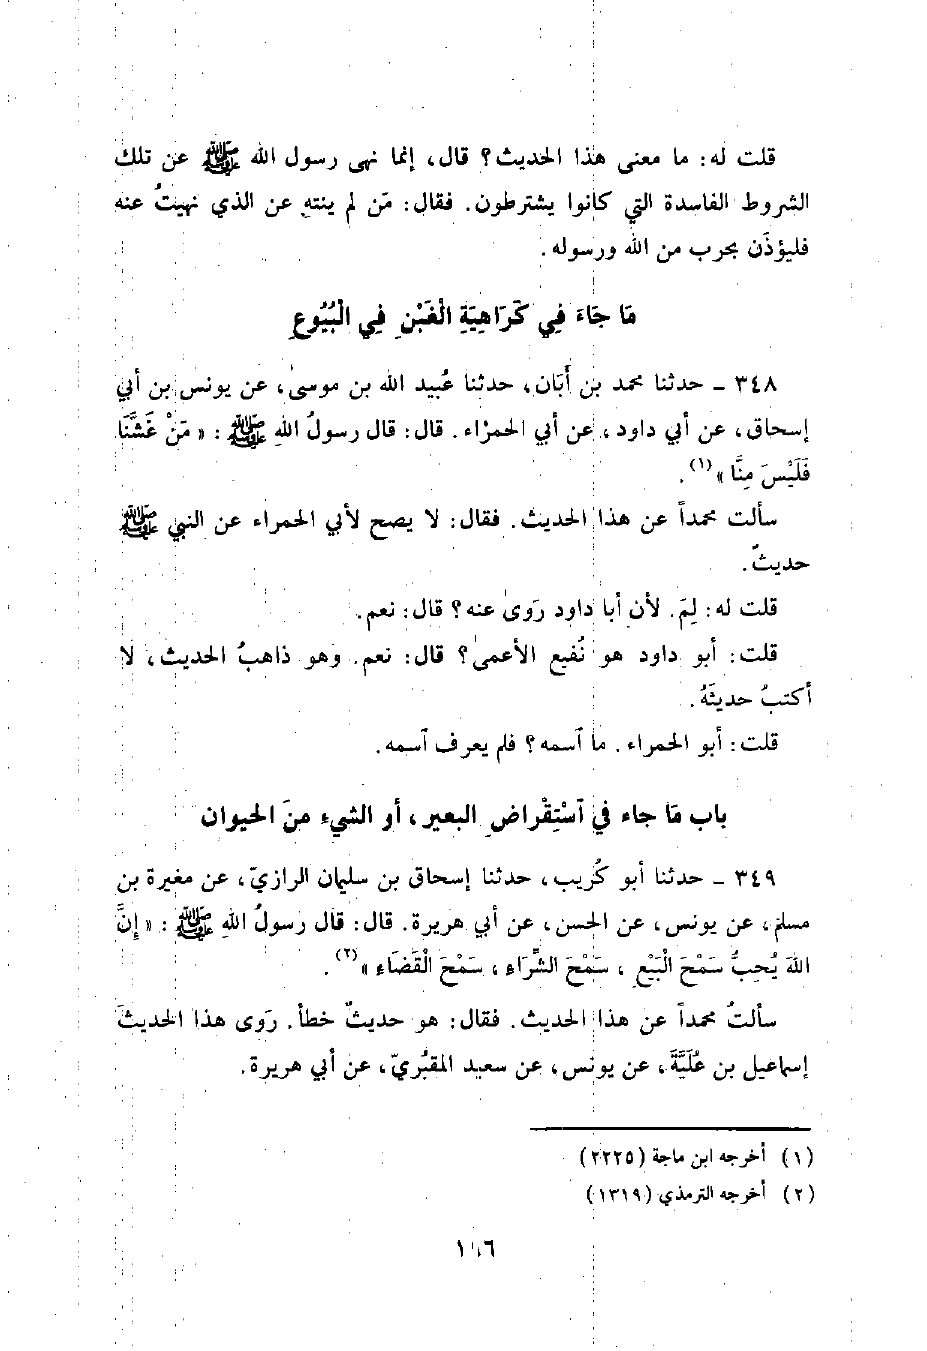 قلت له: ما معنى هذا الحديث؟ قال، إنما نهى رسول الله ﷺ عن تلك
الشروط الفاسدة التي كانوا يشترطون. فقال: مَن لم ينتهِ عن الذي نهيتُ عنه
فليؤذَن بحرب من الله ورسوله.
مَا جَاءَ فِي كَرَاهِيَةِ الْغَبْنِ فِي الْبُيُوعِ
٣٤٨ ـ حدثنا محمد بن أَبَان، حدثنا عُبيد الله بن موسىٰ، عن يونس بن أبي
إسحاق، عن أبي داود، عن أبي الحمرْاء. قال: قال رسولُ اللهِ ﷺ: «مَنْ غَشَّنَا
فَلَيْسَ مِنَّا»(١).
سألت محمداً عن هذا الحديث. فقال: لا يصح لأبي الحمراء عن النبي ﷺ
حديثٌ.
قلت له: لِمَ. لأن أبا داود رَوىٰ عنه؟ قال: نعم.
قلت: أبو داود هو نُفيع الأعمىٰ؟ قال: نعم. وهو ذاهبُ الحديث، لا
أكتبُ حديثَهُ.
قلت: أبو الحمراء. ما آسمه؟ فلم يعرف آسمه.
باب مَا جاء في آسْتِقْراضِ البعير، أو الشيء منَ الحيوان
٣٤٩ ـ حدثنا أبو كُريب، حدثنا إسحاق بن سليمان الرازيّ، عن مغيرة بن
مسلم، عن يونس، عن الحسن، عن أبي هريرة. قال: قال رسولُ اللهِ ﷺ: «إِنَّ
اللهَ يُحِبُّ سَمْحَ الْبَيْعِ، سَمْحَ الشِّرَاءِ، سَمْحَ الْقَضَاءِ»(٢).
سألتُ محمداً عن هذا الحديث. فقال: هو حديثٌ خطأ. رَوى هذا الحديثَ
إسماعيل بن عُلَيَّةَ، عن يونس، عن سعيد المقبُريّ، عن أبي هريرة.
(١) أخرجه ابن ماجة (٢٢٢٥)
(٢) أخرجه الترمذي (١٣١٩)